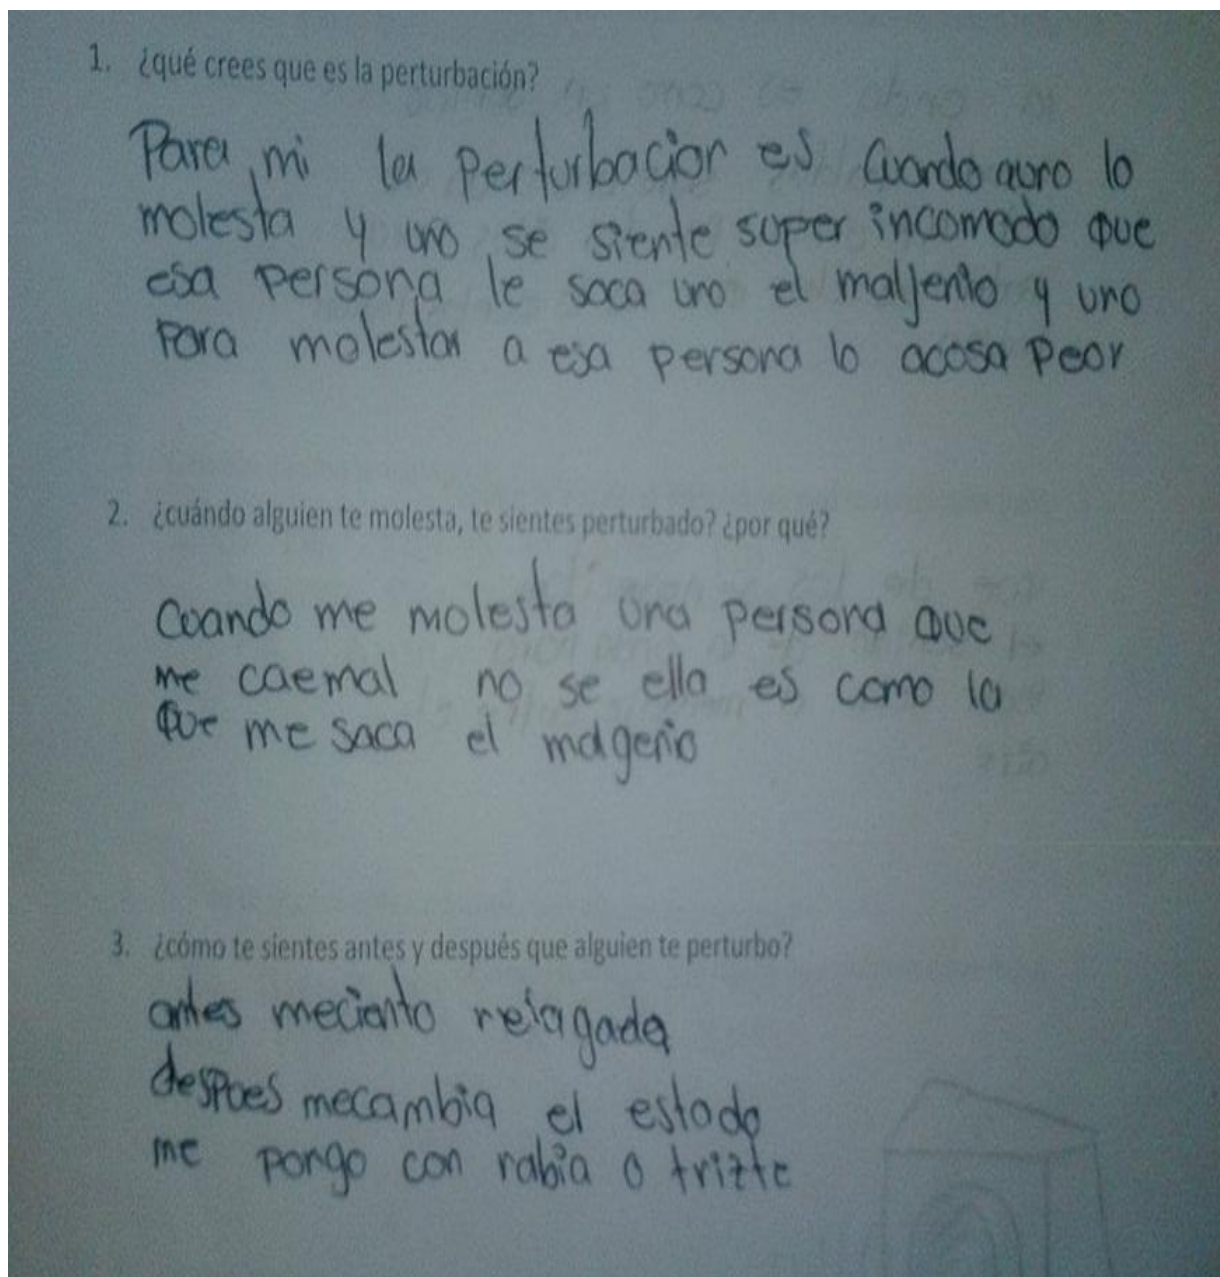 1. ¿qué crees que es la perturbación?
Para mi la Perturbacion es cuando auno lo
molesta y uno se siente super incomodo que
esa persona le saca uno el maljenio y uno
para molestar a esa persona lo acosa peor
2. ¿cuándo alguien te molesta, te sientes perturbado? ¿por qué?
Cuando me molesta una persona que
me caemal no se ella es como la
que me saca el malgenio
3. ¿cómo te sientes antes y después que alguien te perturbo?
antes meciento relagada
despues mecambia el estado
me pongo con rabia o trizte